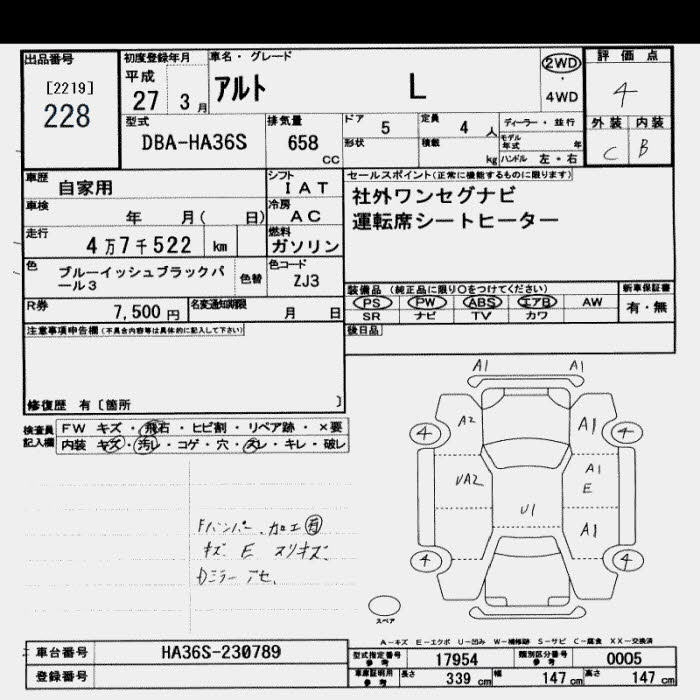 出品番号 初度登録年月 車名・グレード 2WD 評価点
[2219] 平成 アルト L ・ 4
228 27 3月 4WD
型式 排気量 ドア 5 定員 4人 ディーラー・並行 外装 内装
DBA-HA36S 658 CC 形状 積載 kg モデル年式 年 C B
ハンドル 左・右
車歴 自家用 シフト IAT セールスポイント(正常に機能するものに限ります)
車検 年 月( 日) 冷房 AC 社外ワンセグナビ
走行 4万7千522 km 燃料 ガソリン 運転席シートヒーター
色 ブルーイッシュブラックパール3 色替 色コード ZJ3
装備品 (純正品に限り○をつけてください) 新車保証書
R券 7,500円 名変通知期限 月 日 PS PW ABS エアB AW 有・無
SR ナビ TV カワ
注意事項申告欄(不具合内容等は具体的に記入して下さい) 後日品
修復歴 有〔箇所 〕
検査員 FW キズ・飛石・ヒビ割・リペア跡・×要
記入欄 内装 キズ・汚レ・コゲ・穴・スレ・キレ・破レ
A1 A1
4 A2 A1 4
UA2 U1 A1
E
A1
4 4
Fバンパー 加工
キズ E スリキズ
Dミラー アセ
スペア
A－キズ E－エクボ U－凹み W－補修跡 S－サビ C－腐食 XX－交換済
車台番号 HA36S-230789 型式指定番号 参考 17954 類別区分番号 参考 0005
登録番号 車庫証明用 参考 長さ 339 cm 幅 147 cm 高さ 147 cm